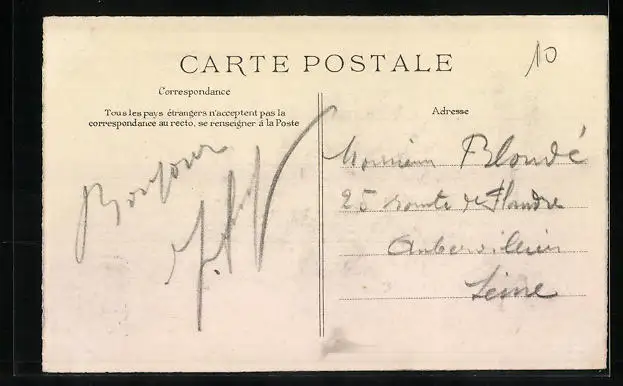 CARTE POSTALE
10
Correspondance
Tous les pays étrangers n'acceptent pas la
correspondance au recto, se renseigner à la Poste
Bonjour
Adresse
Monsieur Blondé
25 route de Flandre
Aubervilliers
Seine